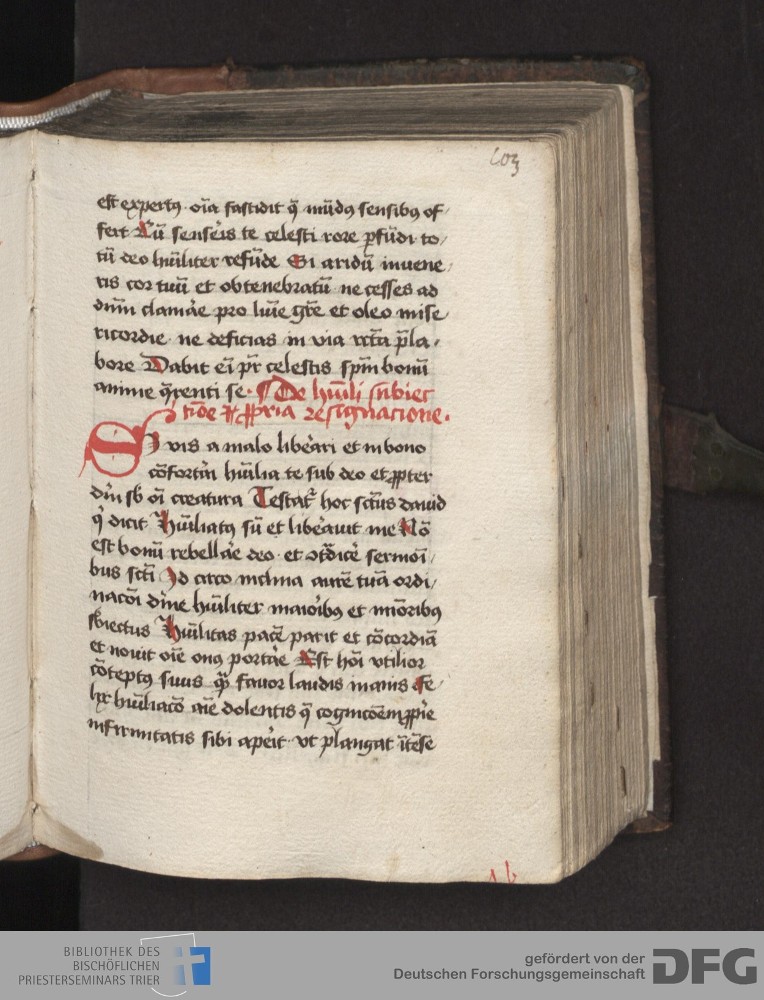 403
est expertus oīa fastidit q̄ mūdus sensibus of
fert Cū senseris te celesti rore ꝑfūdi to
tū deo hūiliter refūde Si aridū inuene
ris cor tuū et obtenebratū ne cesses ad
dn̄m clamāe pro luīe gr̄e et oleo mise
ricordie ne deficias in via rc̄ta p̄ la
bore Dabit eī pr̄ celestis spm̄ bonū
anime q̄renti se. De hūili subiec
tiōe et ꝓpria resignacione.
Si vis a malo liberari et in bono
cōfortari hūilia te sub deo et ꝓpter
dm̄ sb oī creatura Testat᷑ hoc sctūs dauid
q̇ dicit Hūiliatus sū et liberauit me Nō
est bonū rebellāe deo et ꝯtᵃdicē sermoī
bus sctī Id circo inclina aurē tuā ordi
nacōi diuīe hūiliter maiōibus et miōribus
sbiectus Hūilitas pacē parit et cōcordiā
et nouit oīe onus portāe Est hōi vtilior
cōteptus suus qᵃꝫ fauor laudis inanis Fe
lix hūiliacō aīe dolentis q̄ cognicōem ꝓpīe
infirmitatis sibi aperit vt plangat itēse
BIBLIOTHEK DES
BISCHÖFLICHEN
PRIESTERSEMINARS TRIER
gefördert von der
Deutschen Forschungsgemeinschaft
DFG